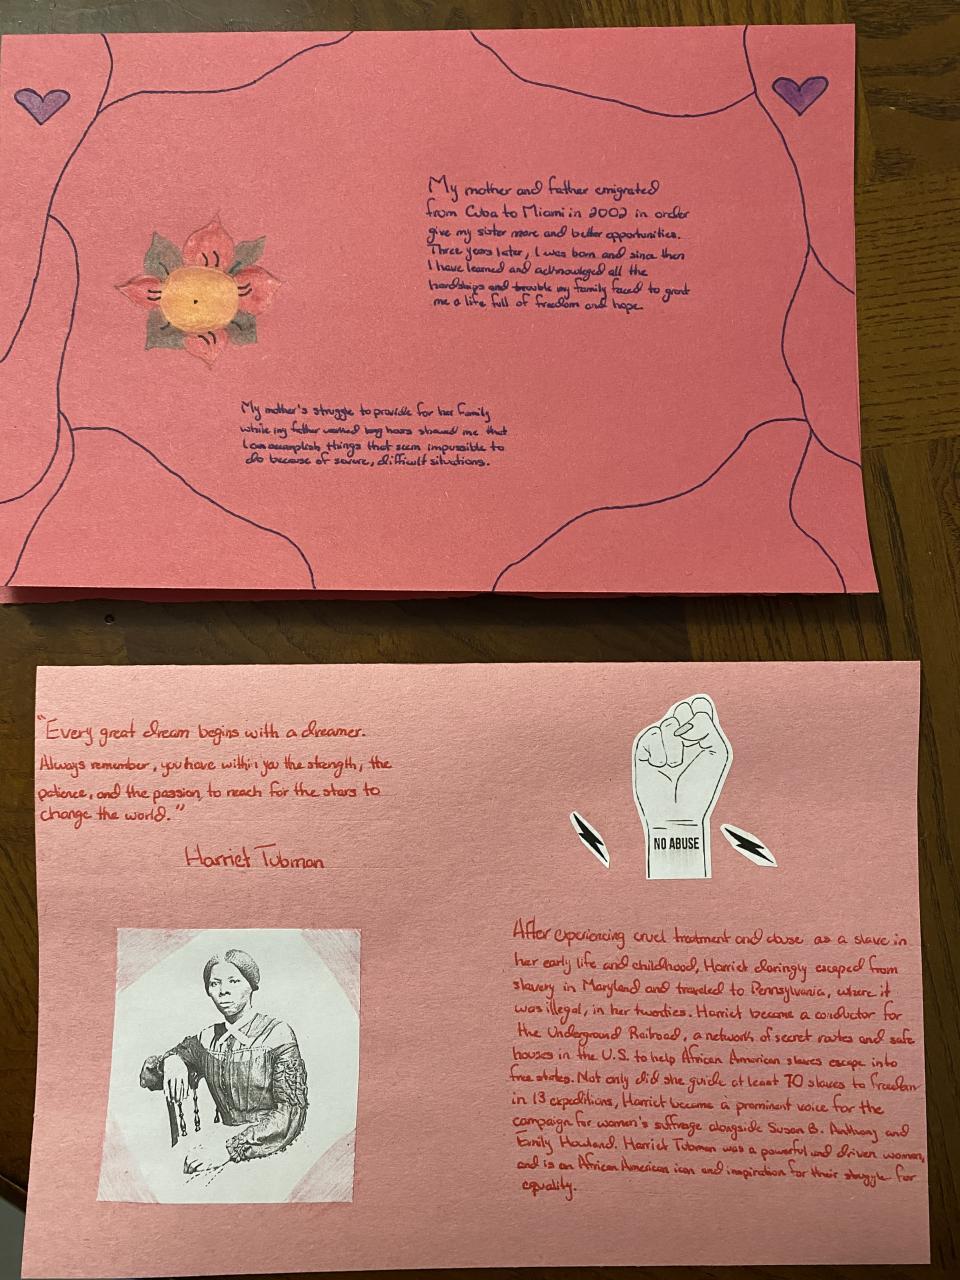 My mother and father emigrated
from Cuba to Miami in 2002 in order
give my sister more and better opportunities.
Three years later, I was born and since then
I have learned and acknowledged all the
hardships and trouble my family faced to grant
me a life full of freedom and hope.
My mother's struggle to provide for her family
while my father worked long hours showed me that
I can accomplish things that seem impossible to
do because of severe, difficult situations.
"Every great dream begins with a dreamer.
Always remember, you have within you the strength, the
patience, and the passion, to reach for the stars to
change the world."
Harriet Tubman
NO ABUSE
After experiencing cruel treatment and abuse as a slave in
her early life and childhood, Harriet daringly escaped from
slavery in Maryland and traveled to Pennsylvania, where it
was illegal, in her twenties. Harriet became a conductor for
the Underground Railroad, a network of secret routes and safe
houses in the U.S. to help African American slaves escape into
free states. Not only did she guide at least 70 slaves to freedom
in 13 expeditions, Harriet became a prominent voice for the
campaign for women's suffrage alongside Susan B. Anthony and
Emily Howland. Harriet Tubman was a powerful and driven women,
and is an African American icon and inspiration for their struggle for
equality.